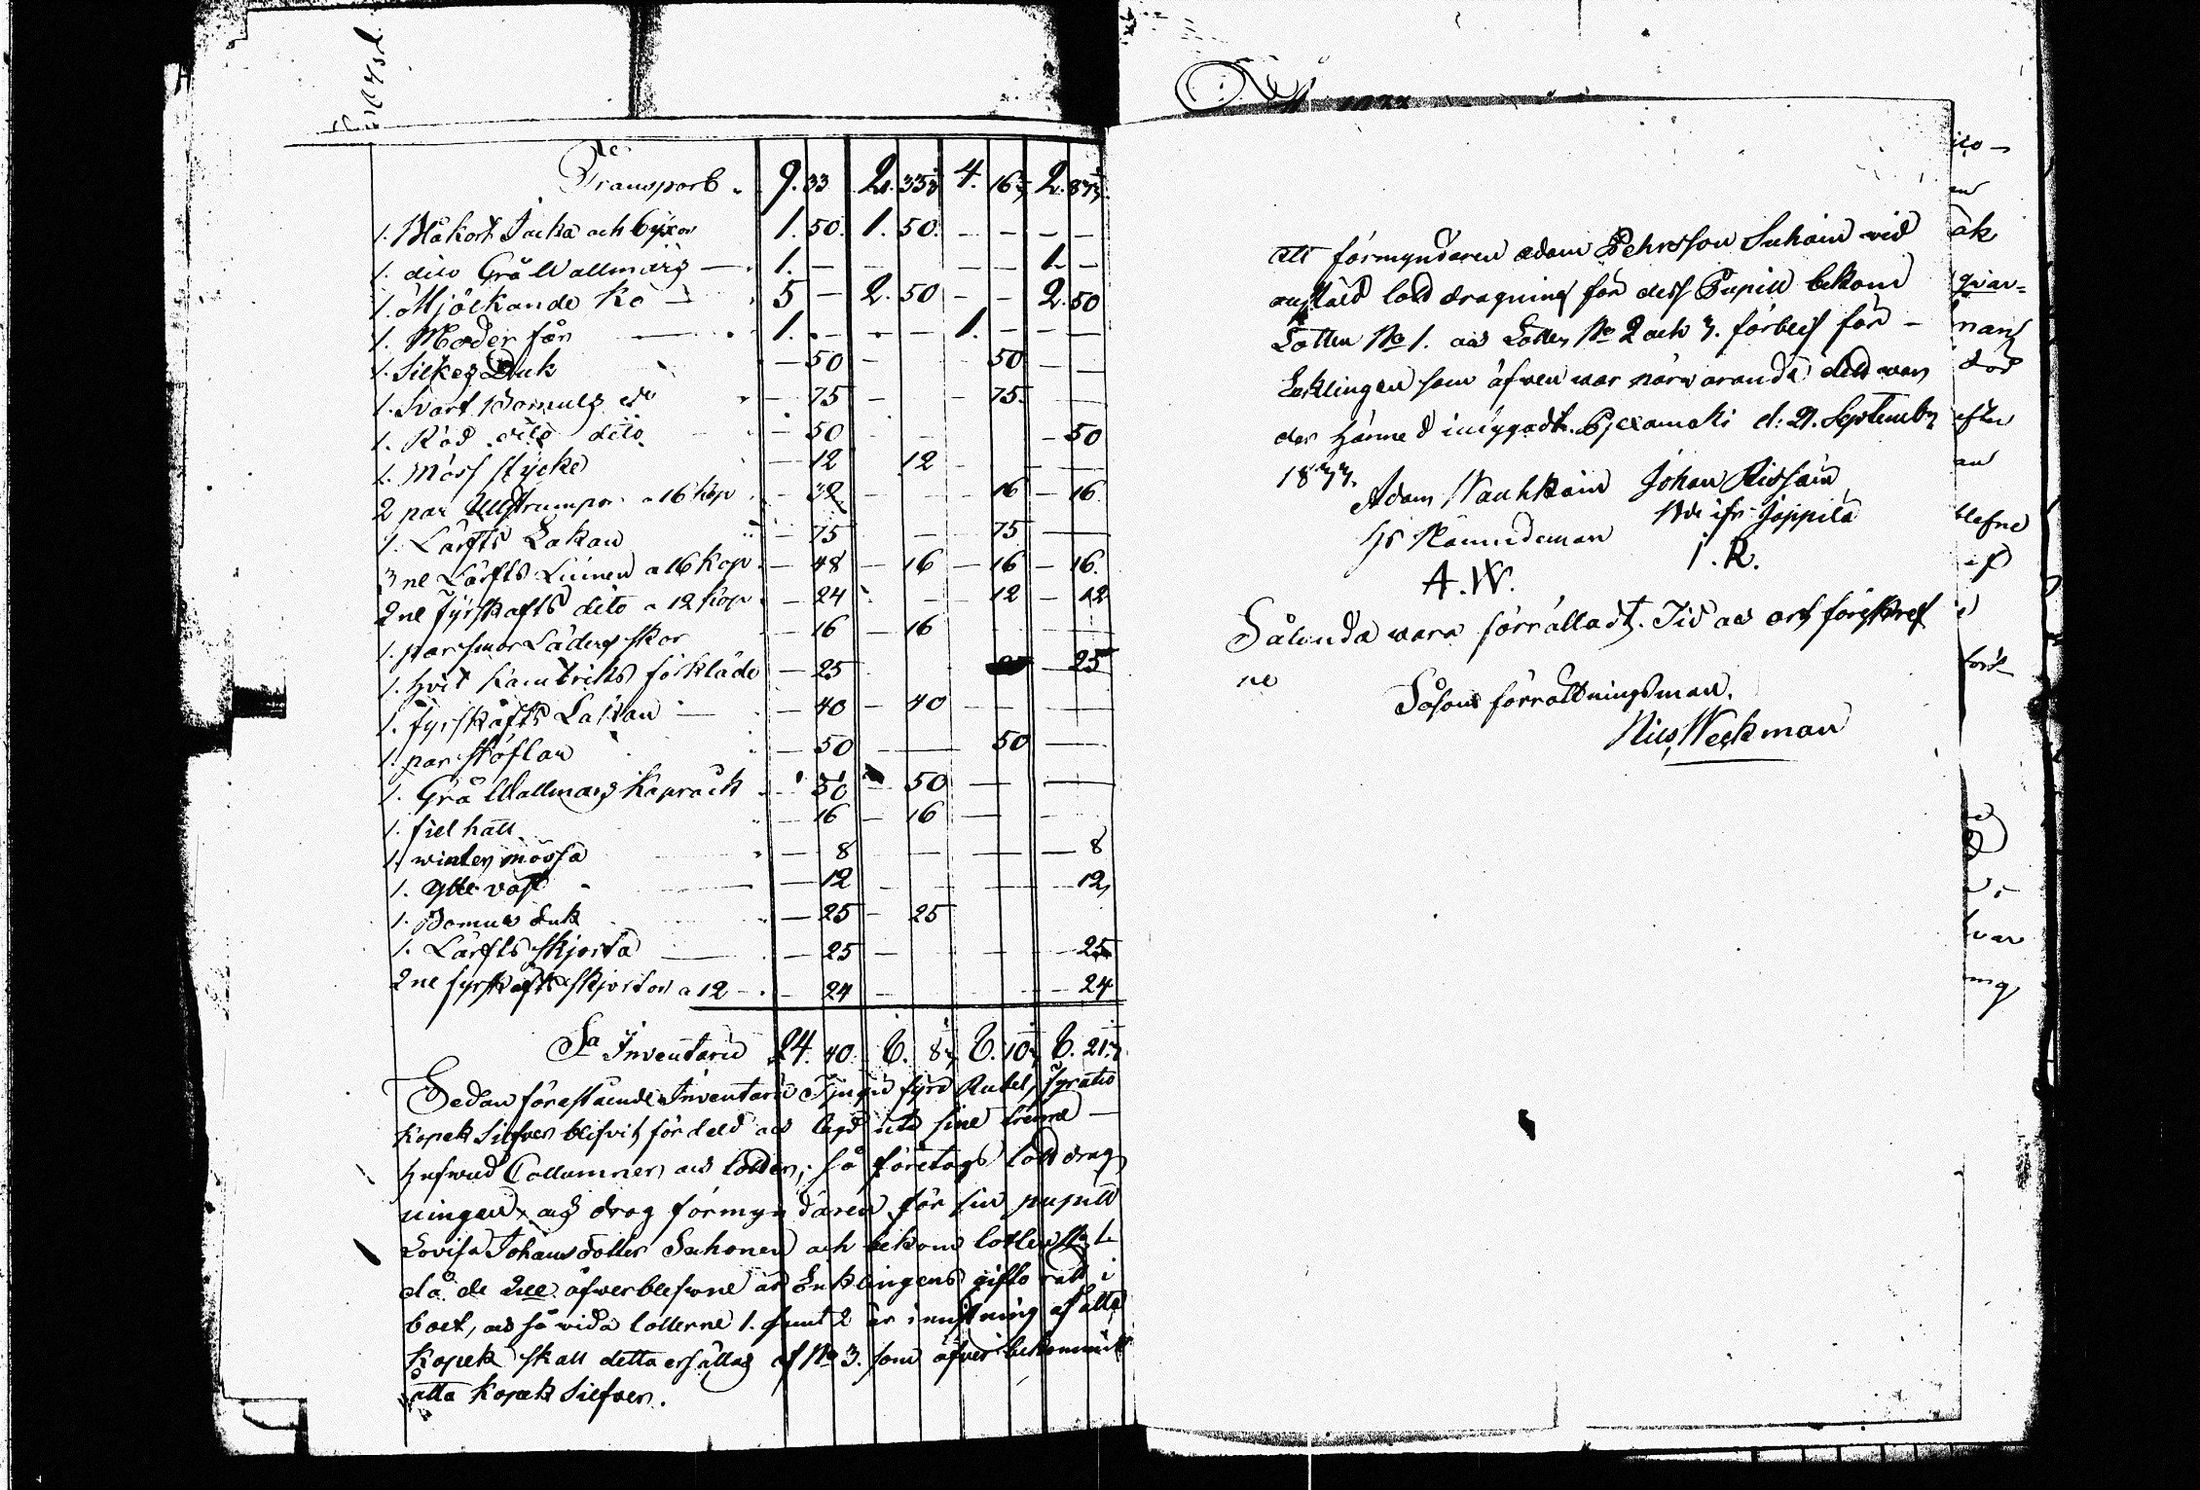 Transport 9. 33 2. 33⅓ 4. 16⅓ 2. 83⅓
1. Blåkort Jacka och byxor 1. 50. 1. 50. – – – –
1. dito Grå Wallmars 1. – – – 1. –
1. Mjölkande Ko 5 – 2. 50 – – 2. 50
1. Moder får 1. – – – 1. – – –
1. Silkes Duk – 50 – 50 – –
1. Svart Bomuls do – 75 – 75 –
1. Röd dito dito – 50 – 50
1. Möss stycke – 12 12 – –
2 par Ullstrumpor a 16 kop – 32 – – 16 – 16
1. Lärfts Lakan – 75 – 75 –
3ne Lärfts Linnen a 16 kop – 48 – 16 – 16 – 16.
2ne fyrskafts dito a 12 kop – 24 – 12 – 12
1. par smorLäders skor – 16 – 16
1. hvit Kamtriks förkläde – 25 – 25
1. fyrskafts Lakan – 40 – 40 – –
1. par stöflar – 50 – 50 –
1. Grå Wallmars Kapråck 50 – 50 – –
1. filt hatt – 16 – 16 – –
1. winter mössa – 8 – – – 8
1. ylle väst – 12 – – 12
1. Bomuls duk – 25 – 25
1. Lärfts skjorta – 25 – – – 25
2ne fyrskafts skjortor a 12 – – 24 – – 24
Sa Inventarie 24. 40. 8. 8⅓ 8. 10⅓ 8. 21⅓
Sedan förestående Inventarie Tjugu fyra Rubel, fyratio
Kopek Silfver blifvit fördeld och lagd uti sine trenne –
hufvud Collumner och lotter, så företogs lottdrag
ningen, och drog förmyndaren för sin pupill
Lovisa Johansdotter Suhonen och bekom lotten No 1.
då de 2ne öfverblefvne är Enklingens giftorätt i
boet, och så vida lotterne 1. samt 2 är i mistning af åtta
Kopek skall detta ersättas af No 3. som öfver bekommit
åtta kopek Silfver.
att förmyndaren Adam Pehrsson Suhoin vid
anstäld lott dragning för dess Pupill bekom
Lotten No 1. och Lotten No 2 och 3. förblef för –
Enklingen som äfven var närvarande
der härmed intygadt. Pjexämäki d: 21. Septemb
1833.
Adam Nauhkoin Johan Rissäin
Nde ifr Jäppilä
A. W. I. R.
Sålunda vara förrättadt. Tid och ort föreskref
ne
Såsom förrättningsman,
Nils Weckman